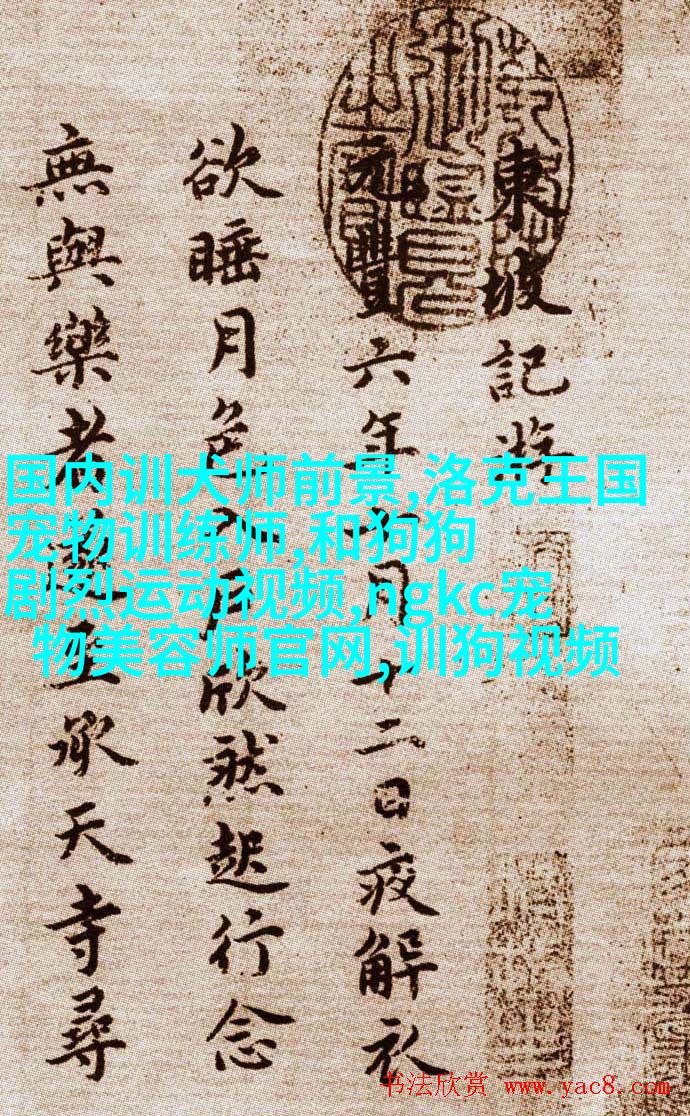 東坡記游
元豐六年十月十二日夜解衣
欲睡月色入戶欣然起行念
無與樂者遂至承天寺尋
国内训犬师前景,洛克王国
宠物训练师,和狗狗
剧烈运动视频,ngkc宠
物美容师官网,训狗视频
书法欣赏 www.yac8.com